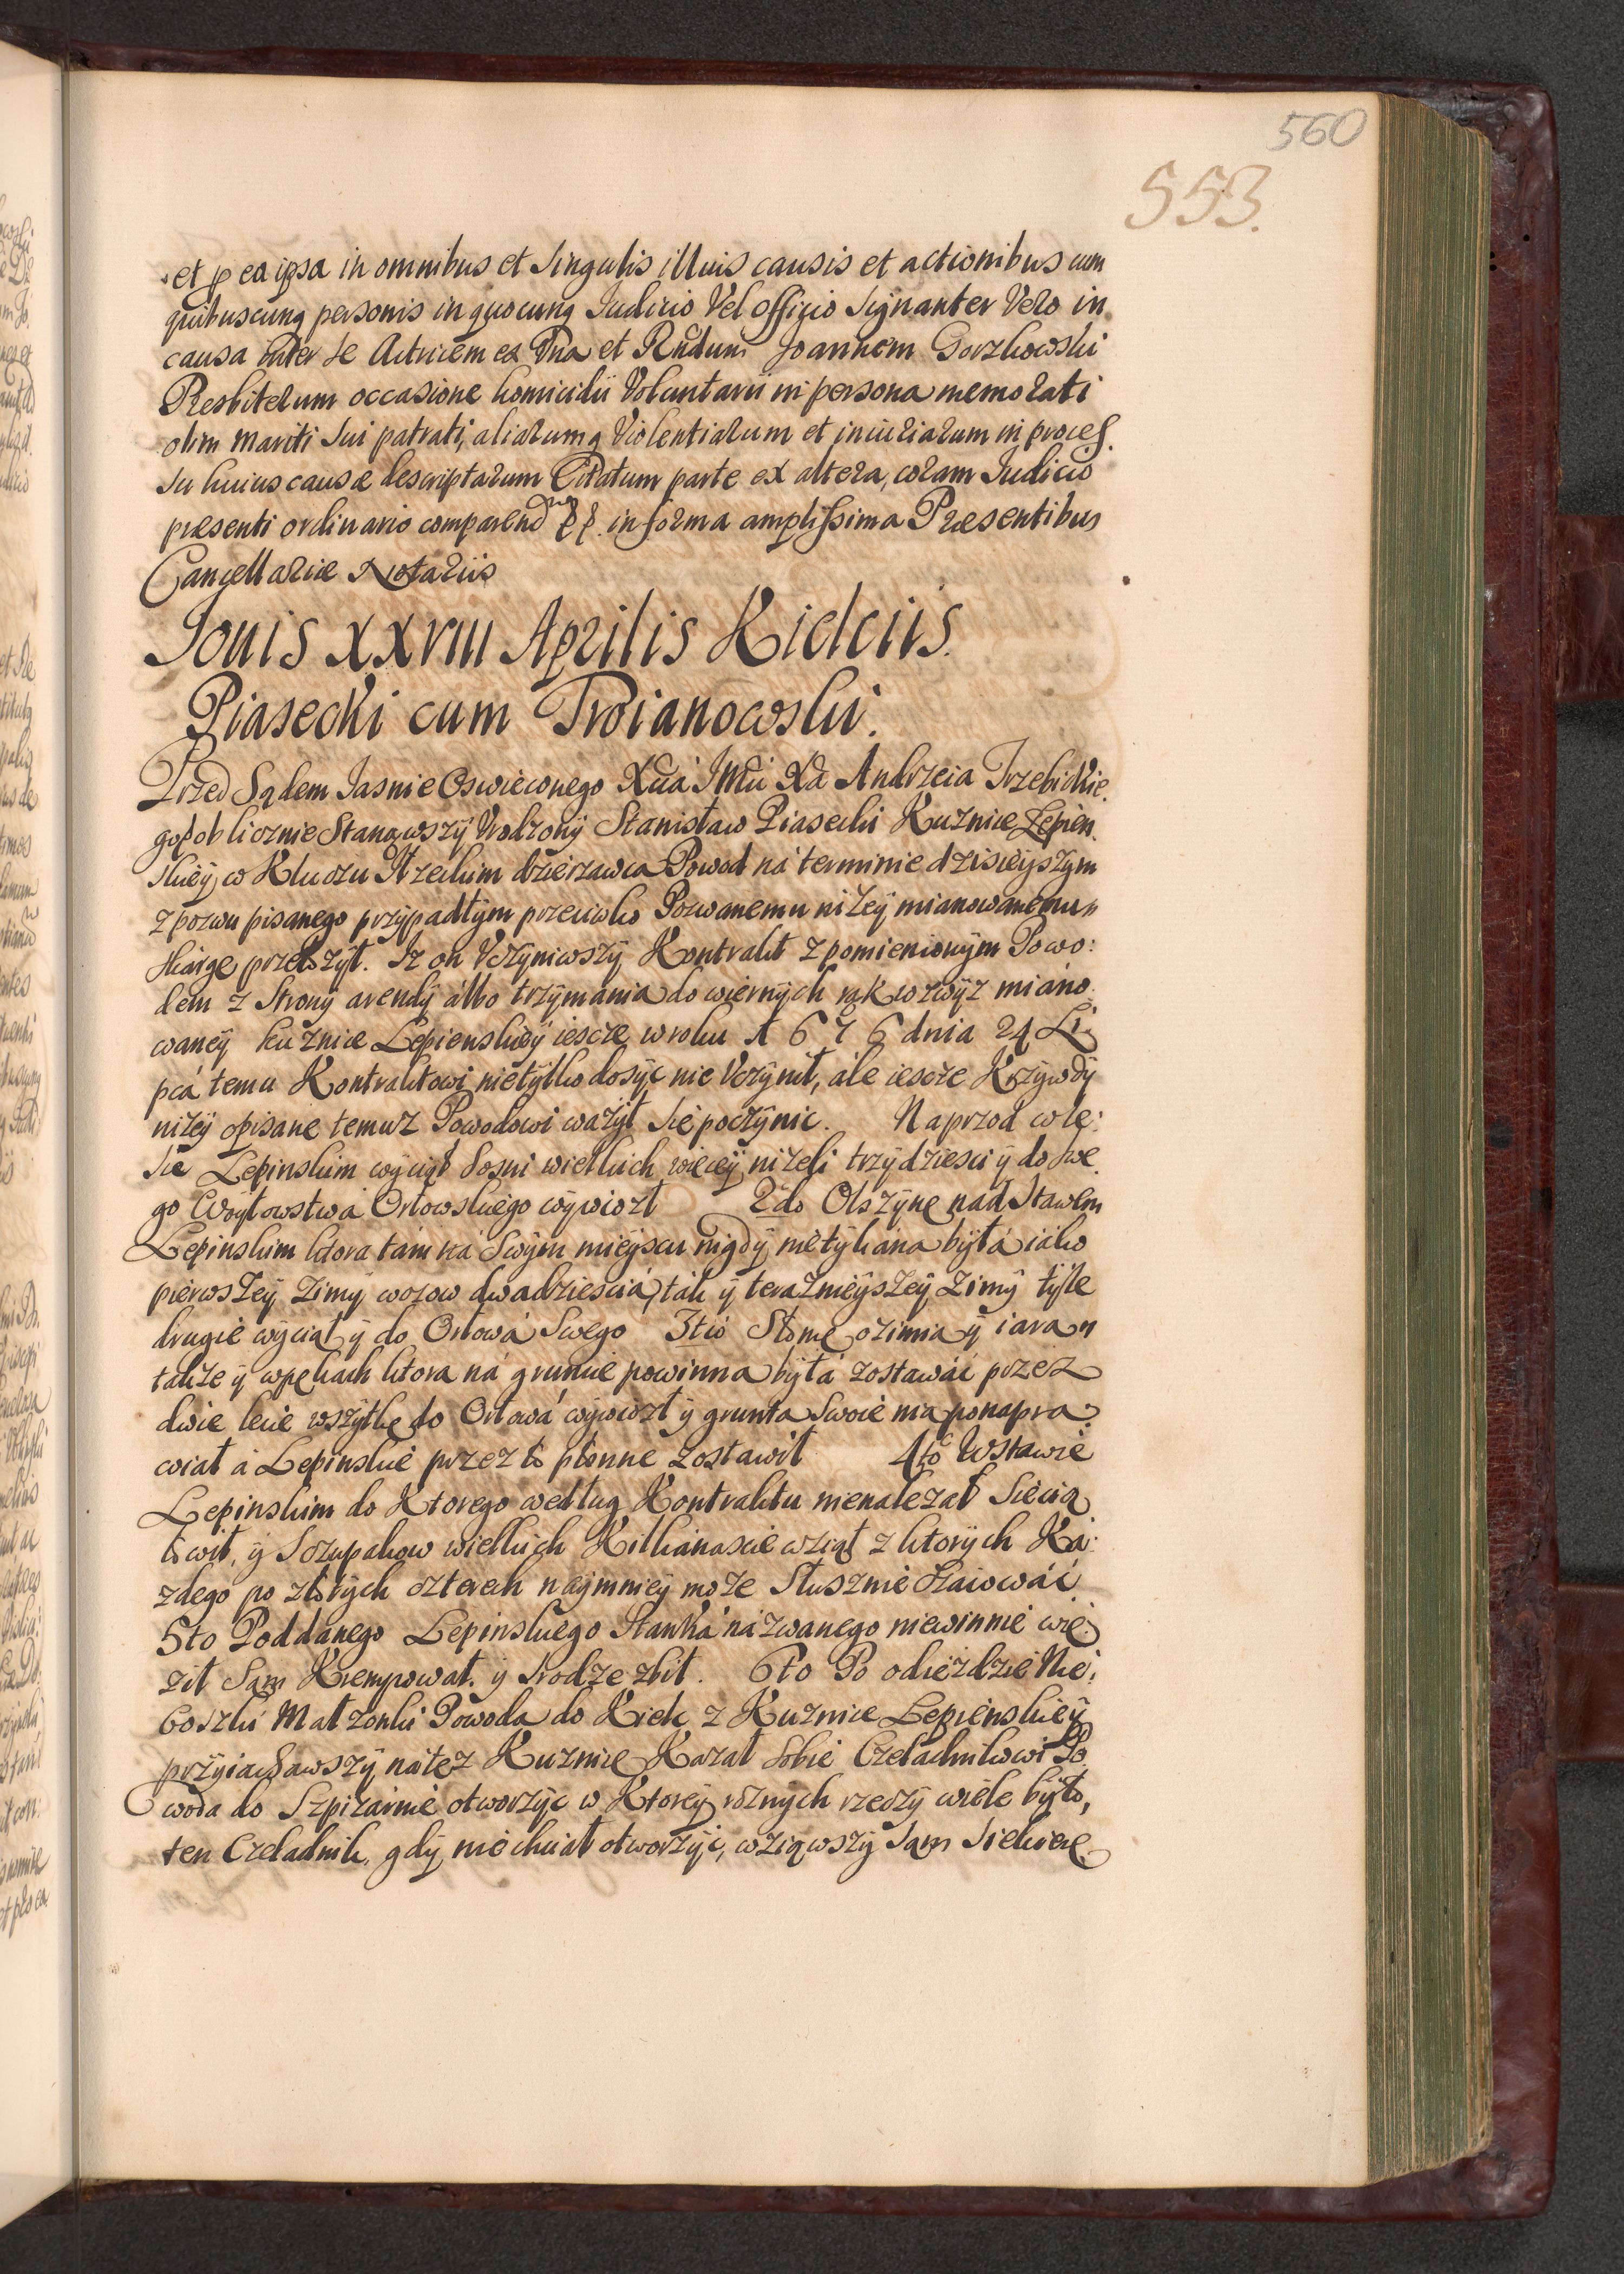 560
553.
et p ea ipsa in omnibus et singulis illius causis et actionibus cum
quibuscunq personis in quocunq Iudicio Vel officio signanter Vero in
causa inter se Actricem ex Vna et Rndum Joannem Gorzkowski
Presbiterum occasione homicidii Voluntarii in persona memorati
olim mariti sui patrati, aliarumq Violentiarum et iniuriarum in proces
su huius causæ descriptarum Citatum parte ex altera, coram Iudicio
præsenti ordinario comparend in forma amplissima Præsentibus
Cancellariæ Notariis
Iouis XXVIII Aprilis Kielciis.
Piasecki cum Troianowski.
Przed Sądem Iasnie Oswieconego Xcia IMci Xa Andrzeia Trzebickie
go oblicznie Stanąwszÿ Vrodzonÿ Stanisław Piasecki Kuznice Lepien
skieÿ w Kluczu Iłzeckim dzierzawca Powod ná terminie dzisieÿszÿm
z pozwu pisanego przÿpadłÿm przeciwko Pozwanemu niżeÿ mianowanemu
skargę przełożÿł. Iz on Vczÿniwszÿ Kontrakt z pomienionÿm Powo:
dem z Stronÿ arendÿ álbo trzÿmania do wiernÿch rąk wzwÿż miáno
waneÿ kuźnice Lepienskieÿ iescze w roku 1676 dnia 24 Li
pcá temu Kontraktowi nietÿlko dosÿc nie Vczÿnił, ále iescze Krzÿwdÿ
niżeÿ opisane temuz Powodowi ważÿł się poczÿnic. Naprzod w le:
sie Lepinskim wÿciął Sosni wielkich więceÿ niżeli trzÿdziesci ÿ do swe
go Woÿtowstwá Orłowskiego wÿwiozł 2do Olszÿnę nad Stawem
Lepinskim ktora tam ná Swÿm mieÿscu nigdÿ nietÿkana bÿłá iáko
pierwszeÿ Zimÿ wozow dwadziesciá, ták ÿ teraznieÿszeÿ Zimÿ tÿle
drugie wÿciął ÿ do Orłowá Swego 3tió Słomę ozimią ÿ iarą
także ÿ w pękach ktora ná gruncie powinna bÿłá zostawáć przez
dwie lecie wszÿtkę do Orłowá wÿwiozł ÿ grunta Swoie nią ponapra
wiał á Lepinskie przez to płonne zostawił 4to W stawie
Lepinskim do Ktorego według Kontraktu nienależał Siecią
łowił, ÿ Sczupakow wielkich Kilkánascie wziął z ktorÿch Ká:
żdego po złotÿch czterech naÿmnieÿ może Słusznie szaiowáć
5to Poddanego Lepinskiego Stanká názwanego niewinnie wię
ził Sam Krempował. ÿ srodze zbił. 6to Po odieździe Nie:
boszki Małżonki Powoda do Kielc z Kuznice Lepienskieÿ
przÿiachawszÿ ná też Kuznicę Kazał Sobie Czeladnikowi Po
woda do Szpizarnie otworzÿc w Ktoreÿ roznÿch rzeczÿ wiele bÿło,
ten Czeladnik, gdÿ nie chciał otworzÿć, wziąwszÿ Sam Siekierę